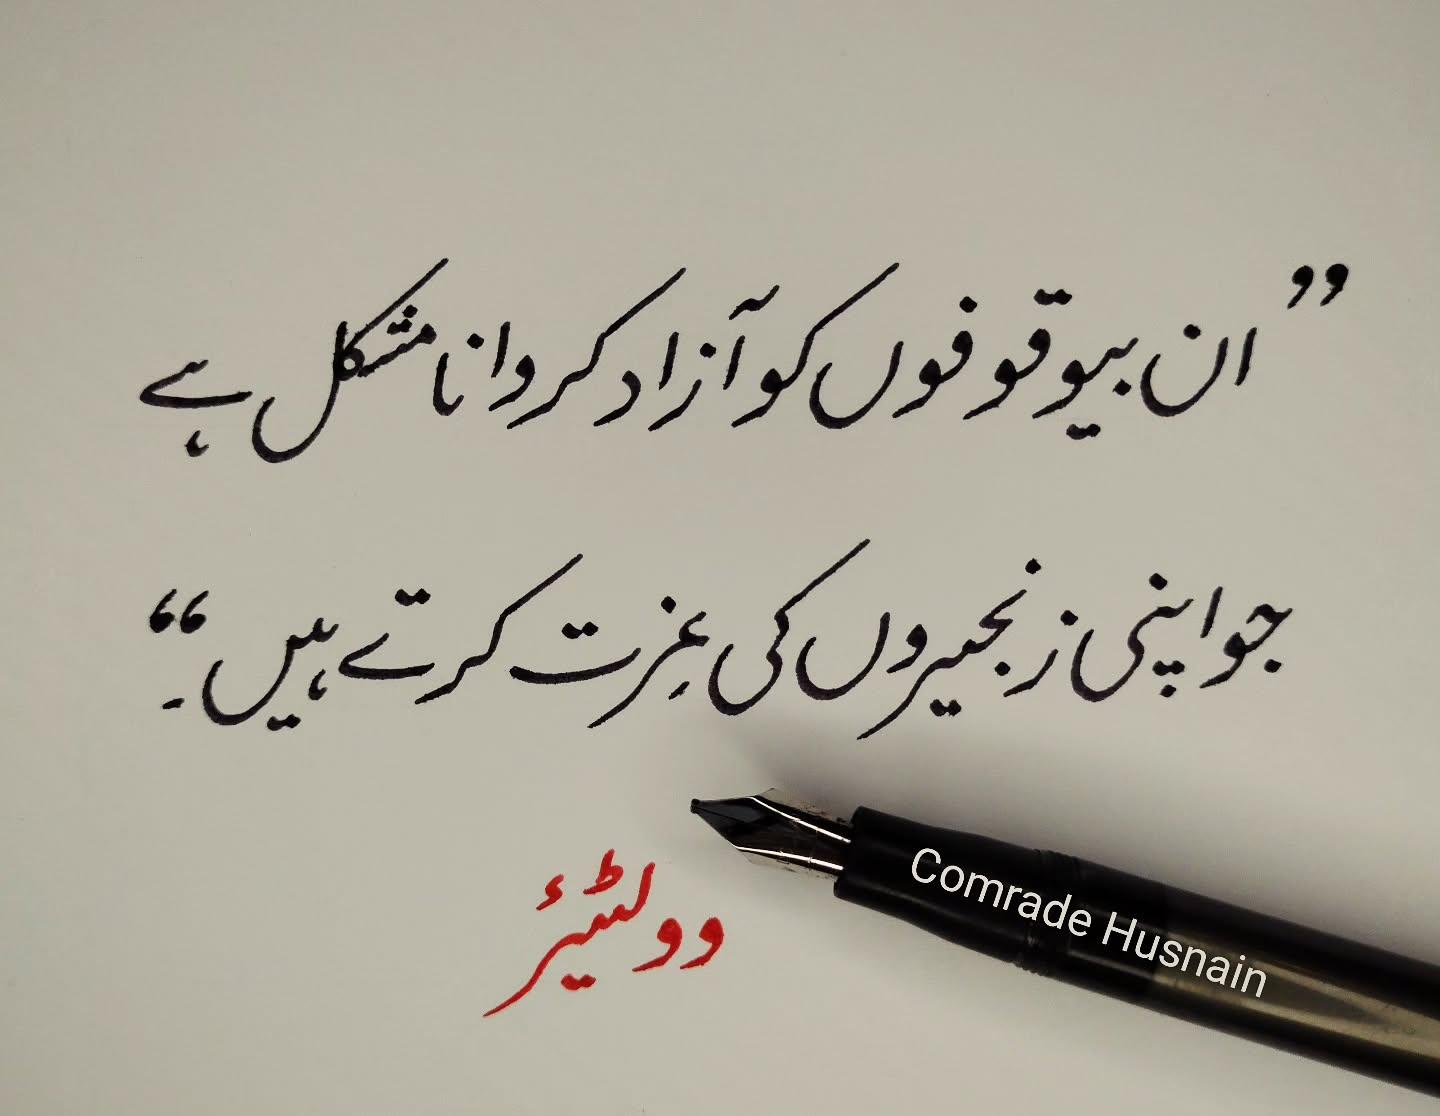 ”ان بیوقوفوں کو آزاد کروانا مشکل ہے
جو اپنی زنجیروں کی عِزت کرتے ہیں۔“
وولٹیئر
Comrade Husnain